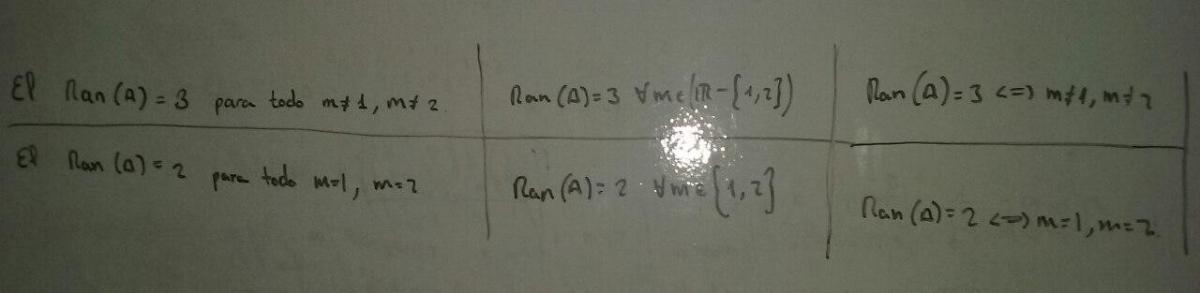 El Ran(A) = 3 para todo m≠1, m≠2.
Ran(A) = 3 ∀m∈(ℝ-{1,2})
Ran(A) = 3 <=> m≠1, m≠2
El Ran(A) = 2 para todo m=1, m=2
Ran(A) = 2 ∀m∈{1,2}
Ran(A) = 2 <=> m=1, m=2.